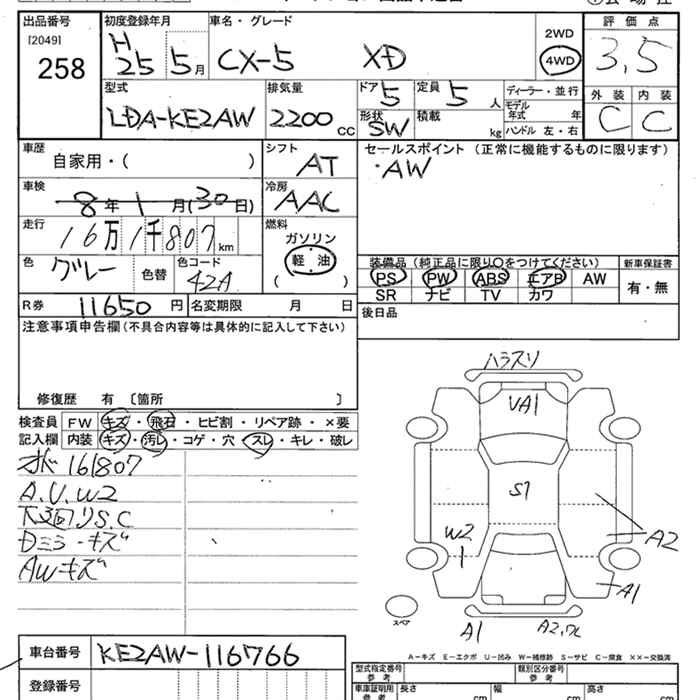 出品番号 初度登録年月 車名・グレード 2WD 評価点
[2049] 258 H 25 5月 CX-5 XD 4WD 3,5
型式 排気量 ドア 5 定員 5 人 ディーラー・並行 外装 内装
LDA-KE2AW 2200 CC 形状 SW 積載 kg モデル年式 年 C C
ハンドル 左・右
車歴 自家用・( ) シフト AT セールスポイント (正常に機能するものに限ります)
・AW
車検 8年 1月(30日) 冷房 AAC
走行 16万1千807km 燃料 ガソリン 軽油 ( )
色 グレー 色替 色コード 42A
装備品 (純正品に限り〇をつけてください) 新車保証書
PS PW ABS エアB AW 有・無
SR ナビ TV カワ
R券 11650円 名変期限 月 日 後日品
注意事項申告欄 (不具合内容等は具体的に記入して下さい)
修復歴 有 〔箇所 〕
検査員 FW キズ・飛石・ヒビ割・リペア跡・×要
記入欄 内装 キズ・汚レ・コゲ・穴・スレ・キレ・破レ
161807
A.U.W2
下廻りS.C
Dミラーキズ
AWキズ
ハラスリ
VA1
S1
W2
A2
A1
A1
スペア
A-キズ E-エクボ U-凹み W-補修跡 S-サビ C-腐食 ××-交換済
車台番号 KE2AW-116766
型式指定番号 参考 類別区分番号 参考
登録番号 車庫証明用 参考 長さ cm 幅 cm 高さ cm